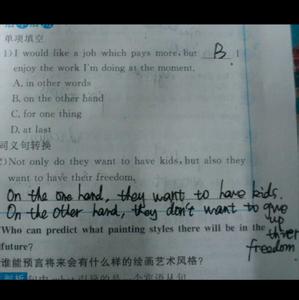 单项填空
1) I would like a job which pays more, but B I
enjoy the work I'm doing at the moment.
A. in other words
B. on the other hand
C. for one thing
D. at last
同义句转换
2) Not only do they want to have kids, but also they
want to have their freedom.
On the one hand, they want to have kids.
On the other hand, they don't want to give
up
Who can predict what painting styles there will be in the
their
future?
freedom
谁能预言将来会有什么样的绘画艺术风格?
句中 what 引导的是一个宾语从句